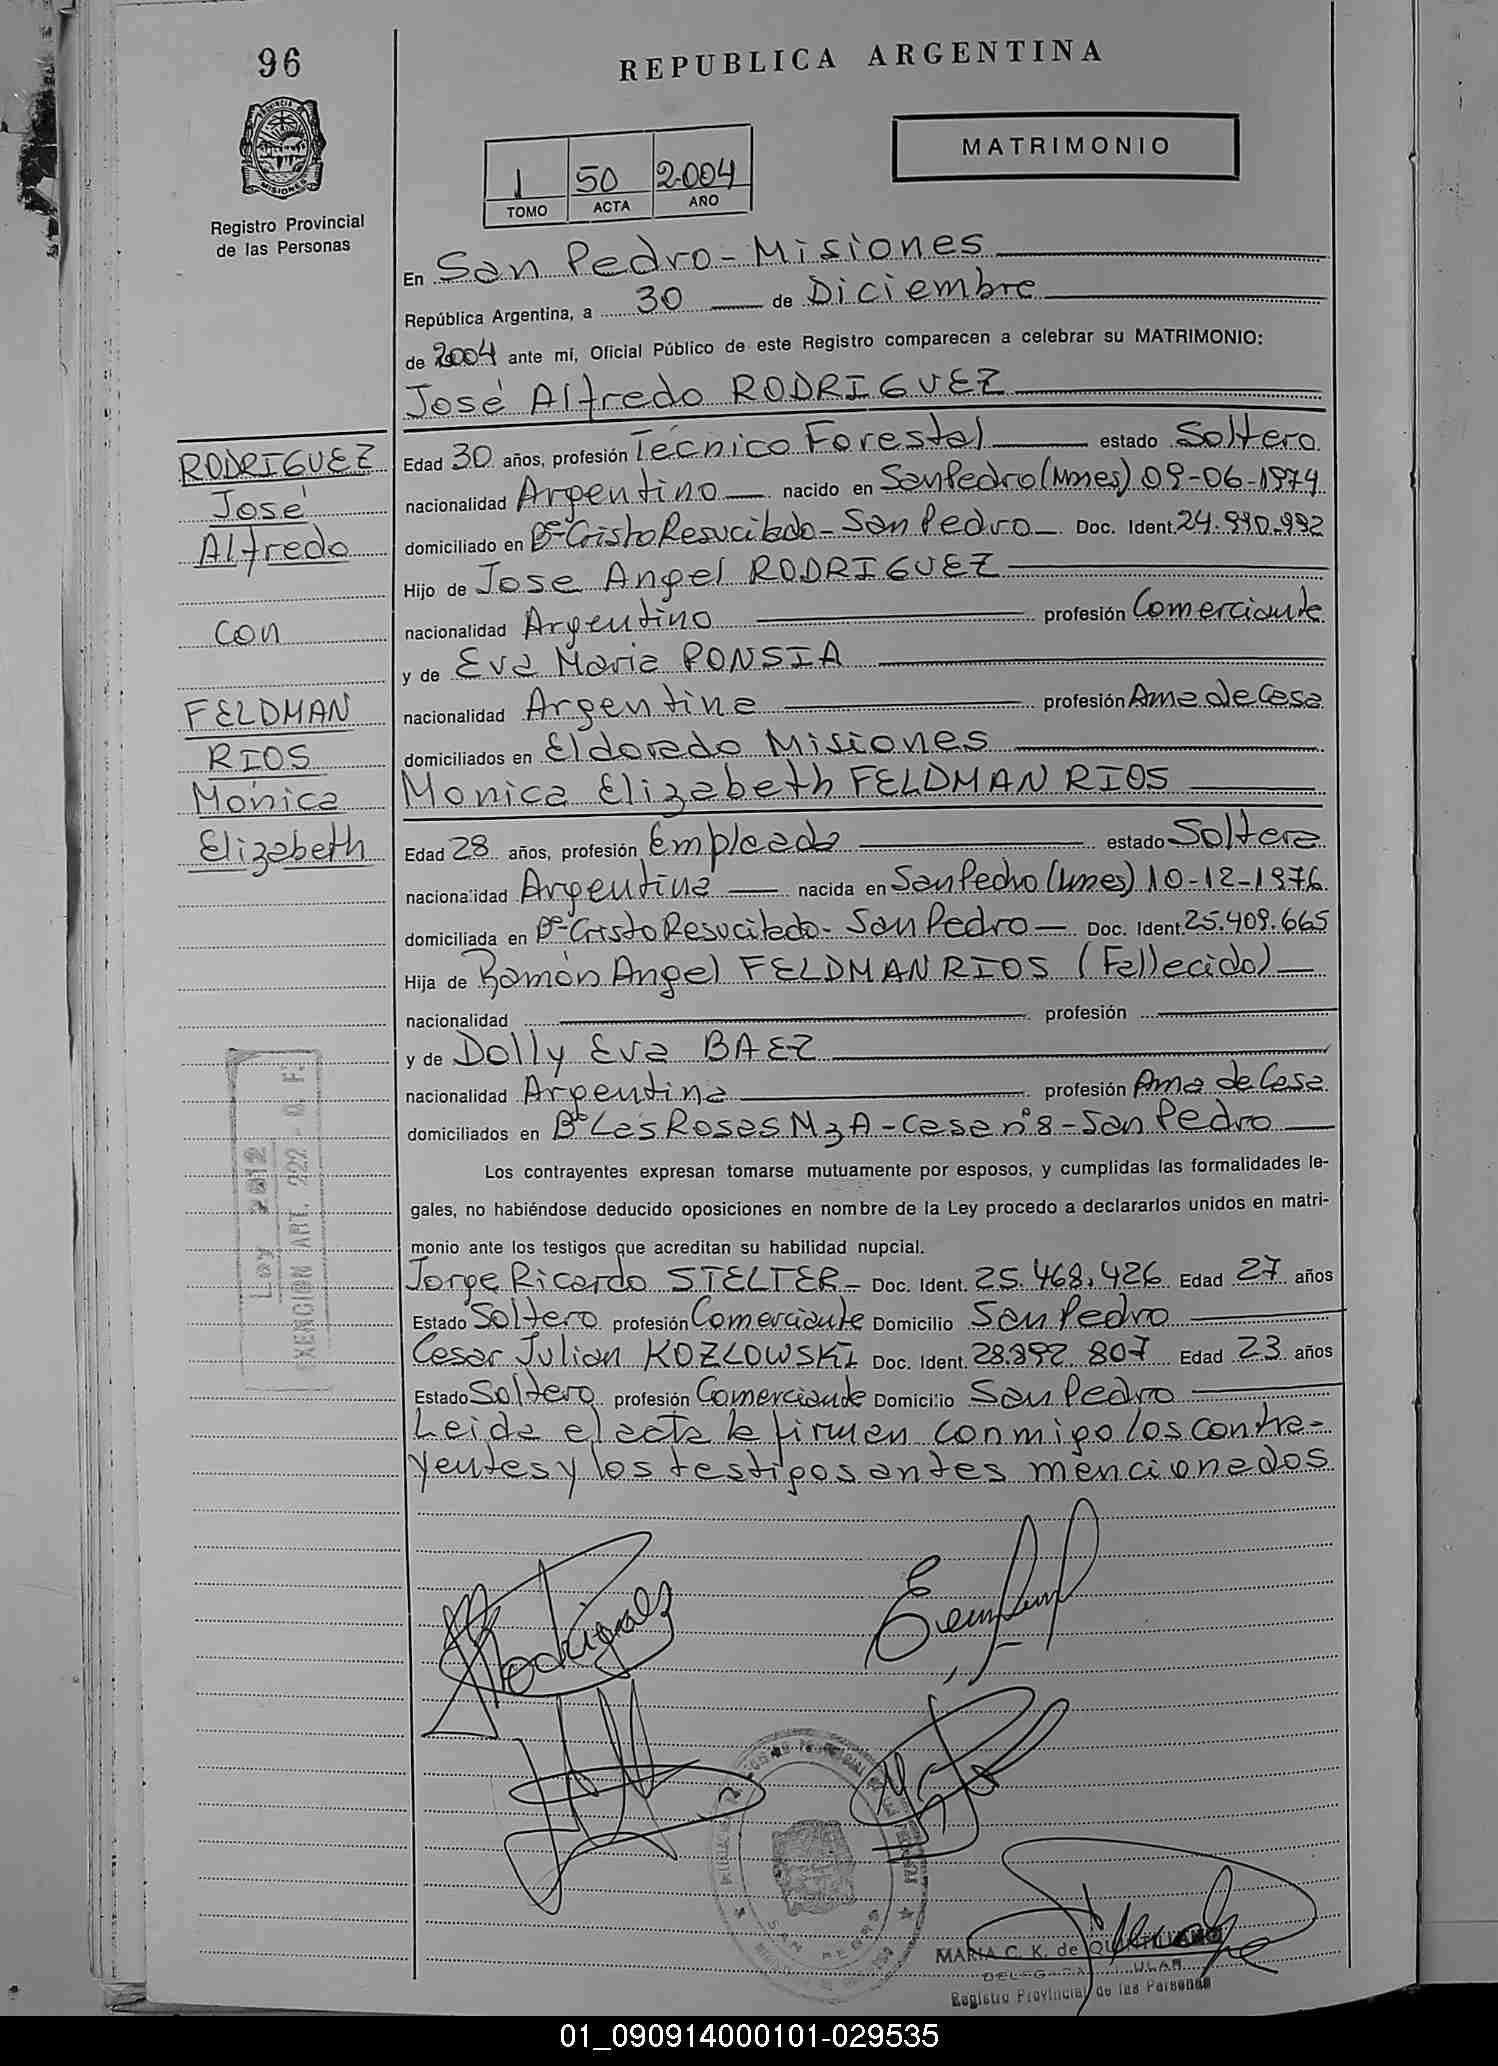 96
REPUBLICA ARGENTINA
MATRIMONIO
1 50 2004
TOMO ACTA AÑO
PROVINCIA DE MISIONES
Registro Provincial
de las Personas
En San Pedro - Misiones
República Argentina, a 30 de Diciembre
de 2004 ante mí, Oficial Público de este Registro comparecen a celebrar su MATRIMONIO:
José Alfredo RODRIGUEZ
RODRIGUEZ
José
Alfredo
con
FELDMAN
RIOS
Monica
Elizabeth
Edad 30 años, profesión Tecnico Forestal estado Soltero
nacionalidad Argentino nacido en San Pedro (Mnes) 09-06-1974
domiciliado en Bº Cristo Resucitado - San Pedro Doc. Ident. 24.990.992
Hijo de Jose Angel RODRIGUEZ
nacionalidad Argentino profesión Comerciante
y de Eva Maria PONSIA
nacionalidad Argentina profesión Ama de Casa
domiciliados en Eldorado Misiones
Monica Elizabeth FELDMAN RIOS
Edad 28 años, profesión Empleada estado Soltera
nacionalidad Argentina nacida en San Pedro (Mnes) 10-12-1976
domiciliada en Bº Cristo Resucitado - San Pedro Doc. Ident. 25.409.665
Hija de Ramón Angel FELDMAN RIOS (Fallecido)
nacionalidad profesión
y de Dolly Eva BAEZ
nacionalidad Argentina profesión Ama de Casa
domiciliados en Bº Las Rosas Mz A - Casa nº 8 - San Pedro
Los contrayentes expresan tomarse mutuamente por esposos, y cumplidas las formalidades le-
gales, no habiéndose deducido oposiciones en nombre de la Ley procedo a declararlos unidos en matri-
monio ante los testigos que acreditan su habilidad nupcial.
Jorge Ricardo STELTER - Doc. Ident. 25.468.426 Edad 27 años
Estado Soltero profesión Comerciante Domicilio San Pedro
Cesar Julian KOZLOWSKI Doc. Ident. 28.392.807 Edad 23 años
Estado Soltero profesión Comerciante Domicilio San Pedro
Leida el acta la firman conmigo los contra-
yentes y los testigos antes mencionados
Ley 2812
EXENCION ART. 222 - C. F.
SAN PEDRO
MARIA C. K. de
Registro Provincial de las Personas
01_090914000101-029535